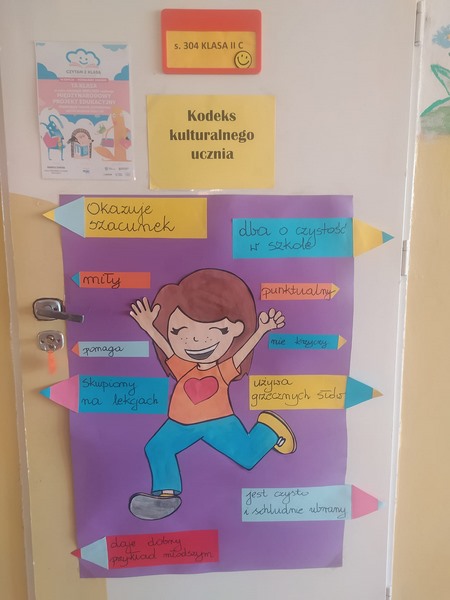 s. 304 KLASA II C
CZYTAM Z KLASĄ
MIĘDZYNARODOWY
PROJEKT EDUKACYJNY
Kodeks
kulturalnego
ucznia
Okazuje
szacunek
dba o czystość
w szkole
miły
punktualny
pomaga
nie
skupiony
na lekcjach
używa
grzecznych słów
jest czysto
i schludnie ubrany
daje dobry
przykład młodszym